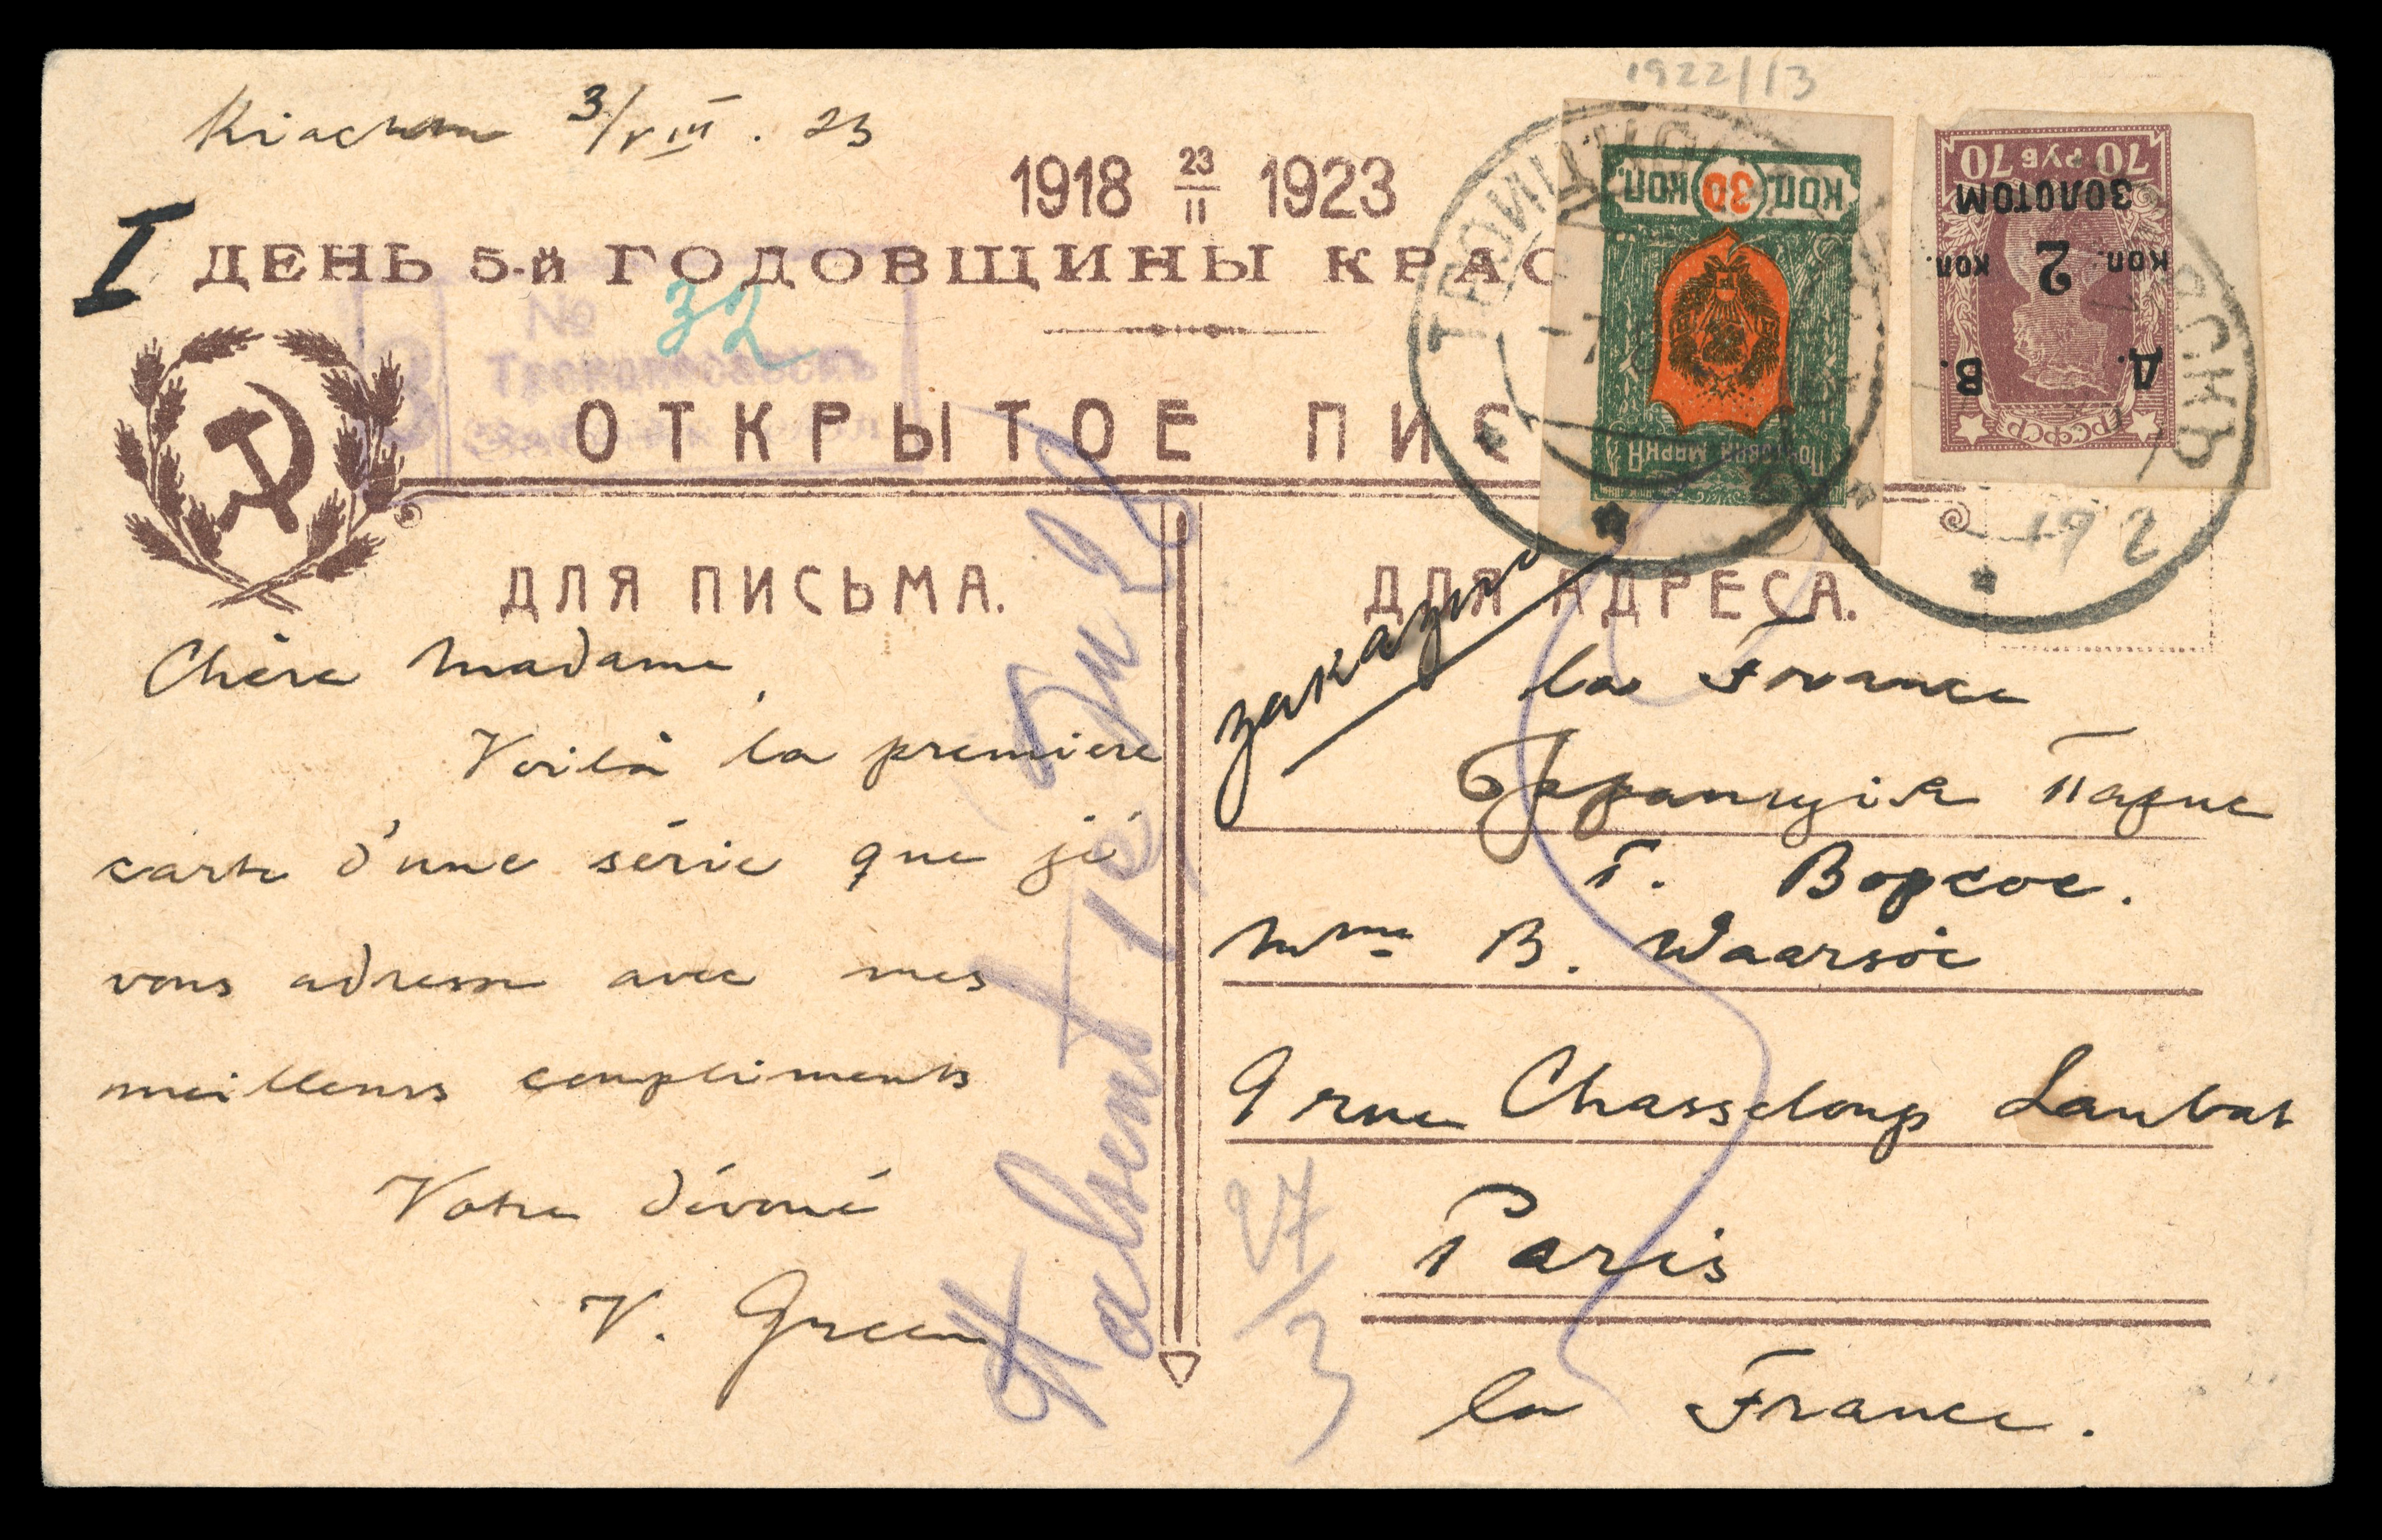 1922/13
3/VIII. 23
1918 23/II 1923
I
ДЕНЬ 5-й ГОДОВЩИНЫ КРАС
№ 32
Троицкосавскъ
ОТКРЫТОЕ ПИС
КОП. 30 КОП.
ПОЧТОВАЯ МАРКА
70 РУБ 70
ЗОЛОТОМ
коп. 2 коп.
Д. В.
РСФСР
192
ДЛЯ ПИСЬМА.
Chère Madame,
Voilà la première
carte d'une série que je
vous adresse avec mes
meilleurs compliments
Votre dévoué
V. Green
ДЛЯ АДРЕСА.
заказное
la France
Франція Париж
Г. Ворсое.
Mme B. Waarsöe
9 rue Chasseloup Laubat
Paris
la France.
27/3